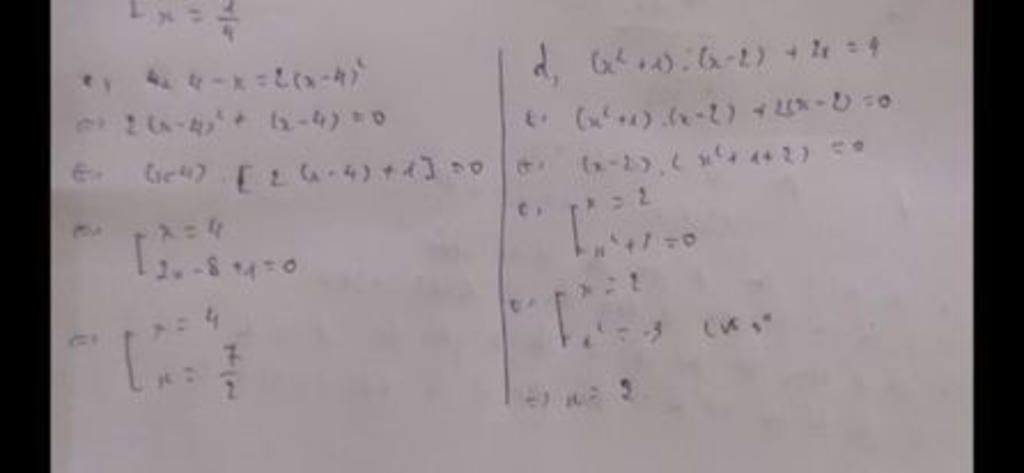 x = 1/4
4 - x = 2(x-4)²
⇔ 2(x-4)² + (x-4) = 0
⇔ (x-4) . [2(x-4)+1] = 0
⇔ [ x = 4
2x - 8 + 1 = 0
⇔ [ x = 4
x = 7/2
d, (x²+1).(x-2) + 2x = 4
⇔ (x²+1).(x-2) + 2(x-2) = 0
⇔ (x-2).(x²+1+2) = 0
⇔ [ x = 2
x² + 3 = 0
⇔ [ x = 2
x² = -3
⇔ x = 2